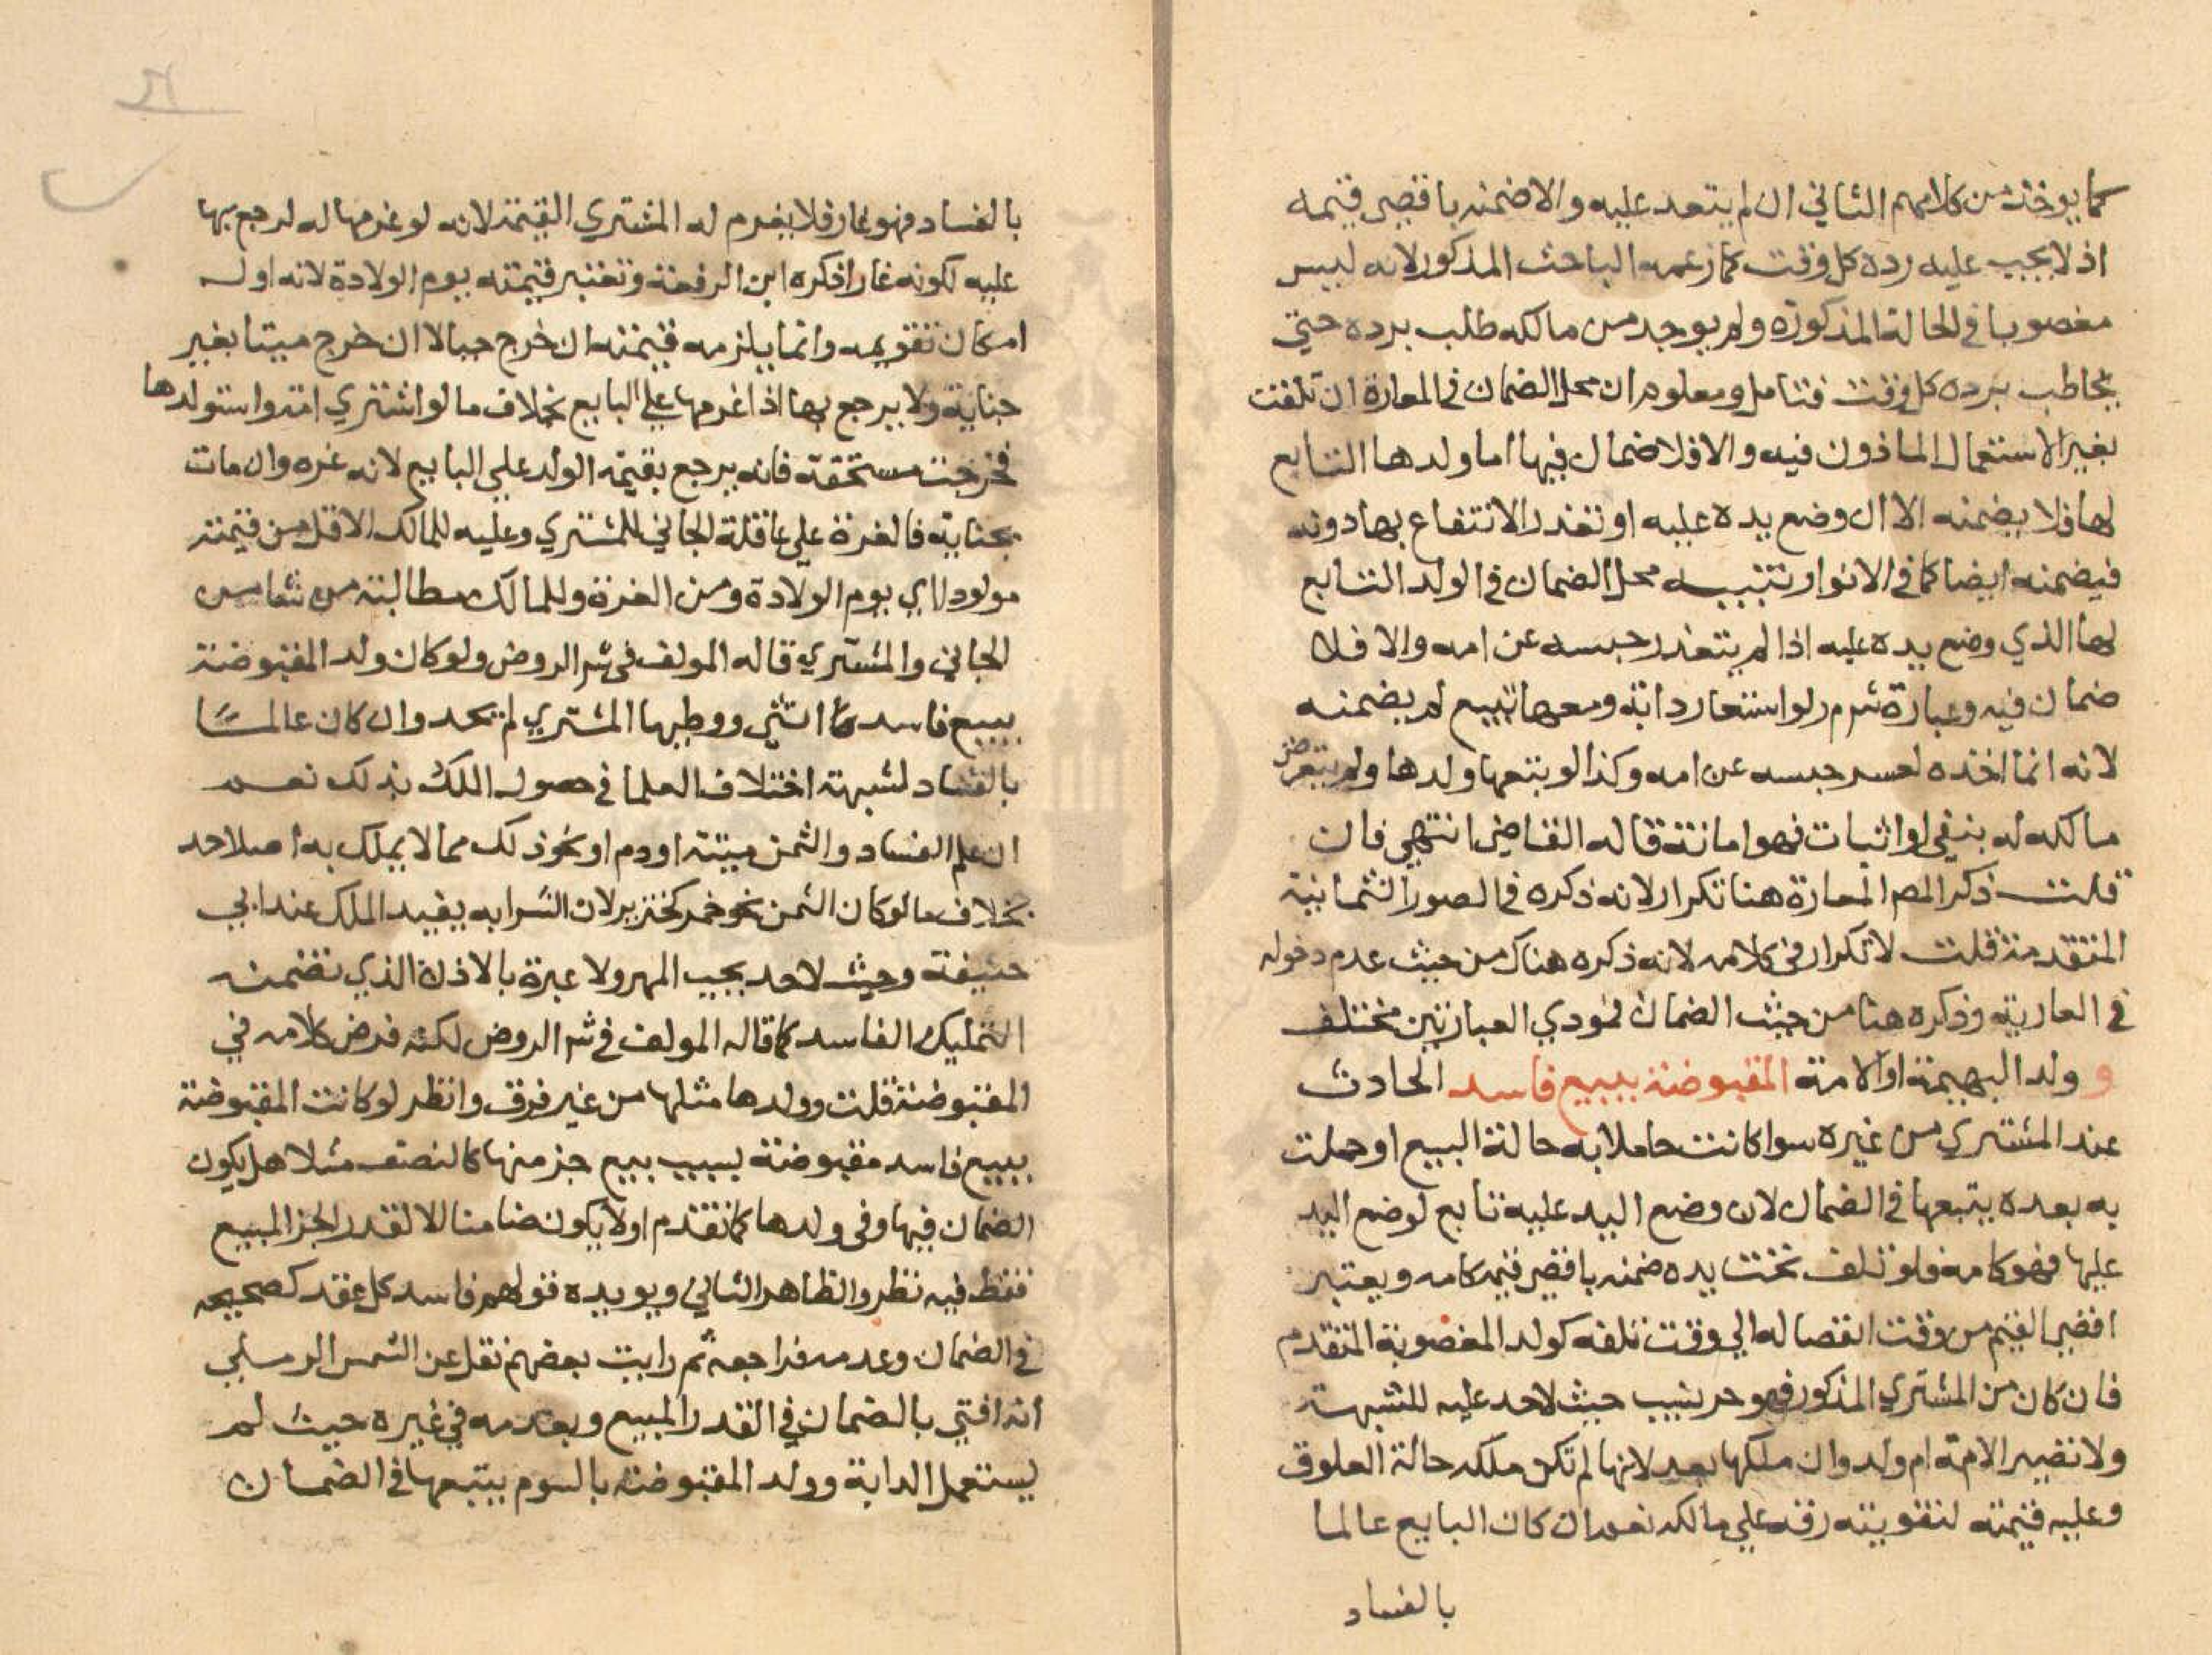 كما يوخذ من كلامهم الثاني ان لم يتعد عليه والا ضمنه باقصي قيمه
اذ لا يجب عليه رده كل وقت كما زعمه الباحث المذكور لانه ليس
مغصوبا في الحالة المذكورة ولم يوجد من مالكه طلب برده حتي
يخاطب برده كل وقت فتامل ومعلوم ان محل الضمان في المعارة ان تلفت
بغير الاستعمال الماذون فيه والا فلا ضمان فيها اما ولدها التابع
لها فلا يضمنه الا ان وضع يده عليه او تعذر الانتفاع بها دونه
فيضمنه ايضا كما في الانوار تنبيه محل الضمان في الولد التابع
لها الذي وضع يده عليه اذا لم يتعذر حبسه عن امه والا فلا
ضمان فيه وعبارة شرم ر لو استعار دابة ومعها تبيع لم يضمنه
لانه انما اخذه لعسر حبسه عن امه وكذا لو يتبعها ولدها ولم يتعرض
مالكه له بنفي او اثبات فهو امانة قاله القاضي انتهي فان
قلت ذكر المص المعارة هنا تكرار لانه ذكره في الصور الثمانية
المتقدمة قلت لا تكرار في كلامه لانه ذكره هناك من حيث عدم دخوله
في العارية وذكره هنا من حيث الضمان فمودي العبارتين مختلف
و ولد البهيمة او الامة المقبوضة ببيع فاسد الحادث
عند المشتري من غيره سوا كانت حاملا به حالة البيع او حملت
به بعده يتبعها في الضمان لان وضع اليد عليه تابع لوضع اليد
عليها فهو كامه فلو تلف تحت يده ضمنه باقصي قيمه كامه ويعتبر
اقصي القيم من وقت انفصاله الي وقت تلفه كولد المغصوبة المتقدم
فان كان من المشتري المذكور فهو حر نسيب حيث لاحد عليه للشبهة
ولا تصير الامة ام ولد وان ملكها بعد لانها لم تكن ملكه حالة العلوق
وعليه قيمته لتفويته رقه علي مالكه نعم ان كان البايع عالما
بالفساد
بالفساد فهو غار فلا يغرم له المشتري القيمة لانه لو غرمها له لرجع بها
عليه لكونه غارا ذكره ابن الرفعة وتعتبر قيمته يوم الولادة لانه اول
امكان تقويمه وانما يلزمه قيمته ان خرج حيا لا ان خرج ميتا بغير
جناية ولا يرجع بها اذا غرمها علي البايع بخلاف ما لو اشتري امة واستولدها
فخرجت مستحقة فانه يرجع بقيمة الولد علي البايع لانه غره وان مات
بجناية فالغرة علي عاقلة الجاني للمشتري وعليه للمالك الاقل من قيمته
مولودا اي يوم الولادة ومن الغرة وللمالك مطالبة من شا من
الجاني والمشتري قاله المولف في شر الروض ولو كان ولد المقبوضة
ببيع فاسد انثي ووطيها المشتري لم يحد وان كان عالما
بالفساد لشبهة اختلاف العلما في حصول الملك بذلك نعم
ان علم الفساد والثمن ميتة او دم او نحو ذلك مما لا يملك به اصلا حد
بخلاف ما لو كان الثمن نحو خمر كخنزير لان الشرا به يفيد الملك عند ابي
حنيفة وحيث لاحد يجب المهر ولا عبرة بالاذن الذي تضمنه
التمليك الفاسد كما قاله المولف في شر الروض لكنه فرض كلامه في
المقبوضة قلت وولدها مثلها من غير فرق وانظر لو كانت المقبوضة
ببيع فاسد مقبوضة بسبب بيع جز منها كالنصف مثلا هل يكون
الضمان فيها وفي ولدها كما تقدم او لا يكون ضامنا الا لقدر الجز المبيع
فقط فيه نظر والظاهر الثاني ويويده قولهم فاسد كل عقد كصحيحه
في الضمان وعدمه فراجعه ثم رايت بعضهم نقل عن الشمس الرملي
انه افتي بالضمان في القدر المبيع وبعدمه في غيره حيث لم
يستعمل الدابة وولد المقبوضة بالسوم يتبعها في الضمان